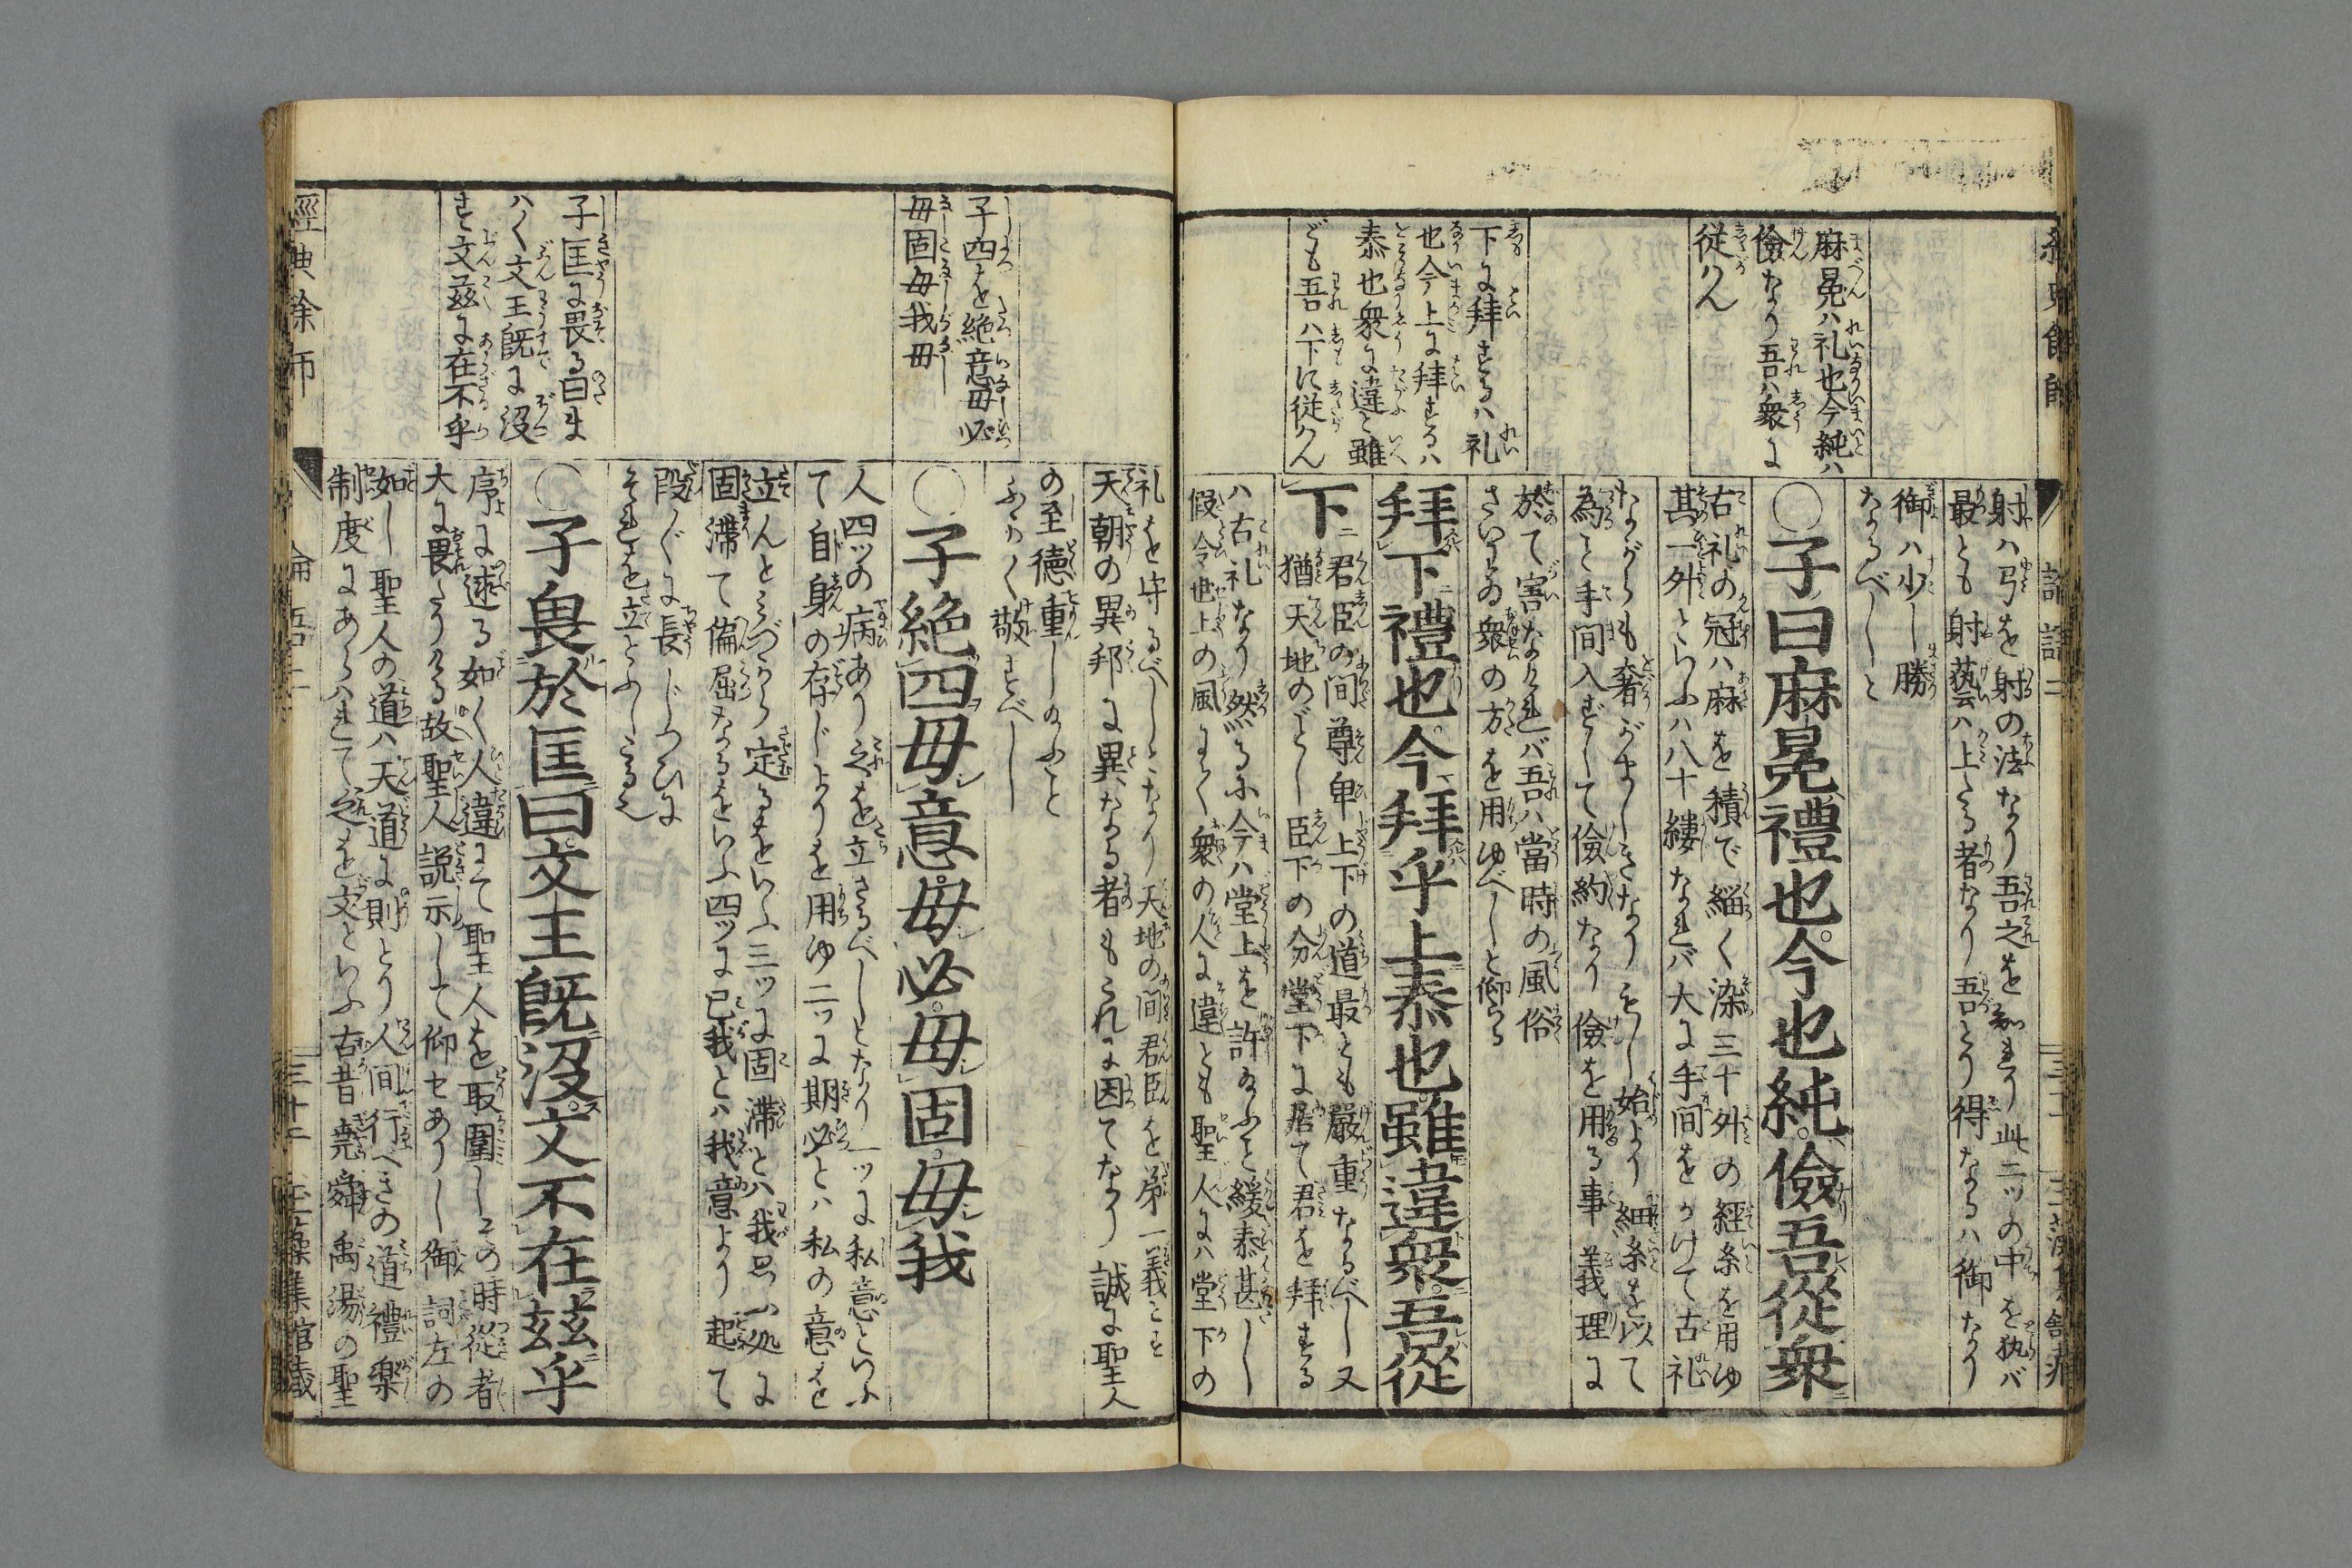 麻冕ハ礼也今純ハ
儉なり吾ハ衆に
従ハん
下に拜するハ礼
也今上に拜するハ
泰也衆に違と雖
ども吾ハ下に従ハん
射ハ弓を射の法なり吾之を知れり此二ッの中を執バ
最とも射藝ハ上たる者なり吾とり得なるハ御なり
御ハ少し勝
なるべしと
○子曰麻冕禮也今也純儉吾從衆
古礼の冠ハ麻を積で緇く染三十外の經糸を用ゆ
其一外といふハ八十縷なれバ大に手間をかけて古礼
ながらも奢がましきなりもし始より細糸を以て
為と手間入ずして儉約なり儉を用る事義理に
於て害なけれバ吾ハ當時の風俗
さいわゐ衆の方を用ゆべしと仰らる
拜下禮也今拜乎上泰也雖違衆吾從
下
君臣の間尊卑上下の道最とも嚴重なるべし又
猶天地のごとし臣下の分堂下に居て君を拜する
ハ古礼なり然るに今ハ堂上を許給ふと緩泰甚し
假令世上の風にて衆の人に違とも聖人にハ堂下の
子四を絶意毋必
毋固毋我毋
子匡に畏る曰ま
ハく文王既に没
す文茲に在不乎
礼を守るべしとなり天地の間君臣を第一義とす
天朝の異邦に異なる者もこれに因てなり誠に聖人
の至徳重し給ふこと
ふかく敬すべし
○子絶四毋意毋必毋固毋我
人四ッの病あり之を立ざるべしとなり一ッに私意といふ
て自身の存じよりを用ゆ二ッに期必とハ私の意を
立んとみづから定るをいふ三ッに固滞とハ我思ふ処に
固滞て偏屈なるをいふ四ッに己我とハ我意より起て
段〻に長じつひに
それを立とふしたる也
○子畏於匡曰文王既沒文不在茲乎
序に述る如く人違にて聖人を取圍しその時從者
大に畏たりける故聖人説示して仰せありし御詞左の
如し聖人の道ハ天道に則とり人間行べきの道禮樂
制度にあらハれて之を文といふ古昔堯舜禹湯の聖
經典餘師
論語二
三十二